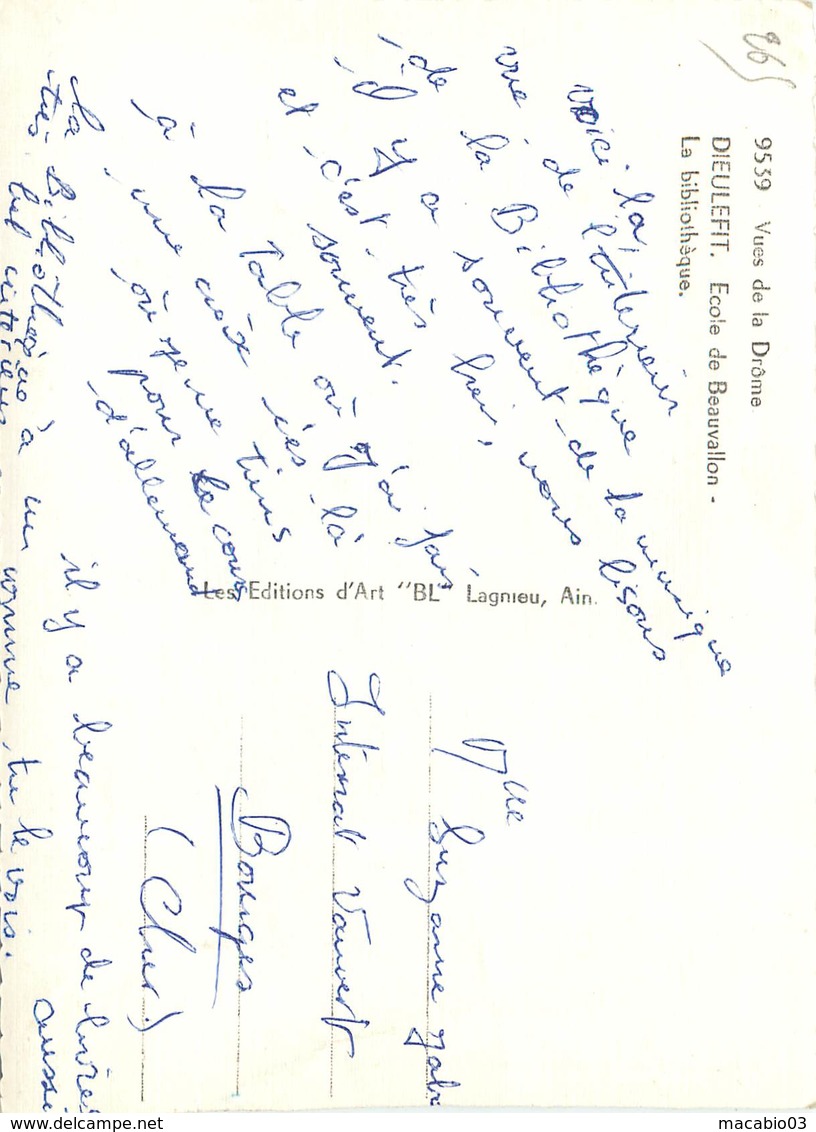 26
9539 Vues de la Drôme
DIEULEFIT. Ecole de Beauvallon -
La bibliothèque.
Voici la
vue de l'intérieur
de la Bibliothèque
il y a souvent de la musique
et c'est très bien, nous lisons
souvent.
à la Table où j'ai fais
une croix c'es là
où je me tiens
pour le cours
d'allemand
il y a beaucoup de livres
La Bibliothèque à un aussi
très bel intérieur comme tu le vois.
Les Editions d'Art "BL" Lagnieu, Ain.
Mlle Suzanne
Internat Vauvert
Bourges
(Cher)
delcampe.net
macabio03